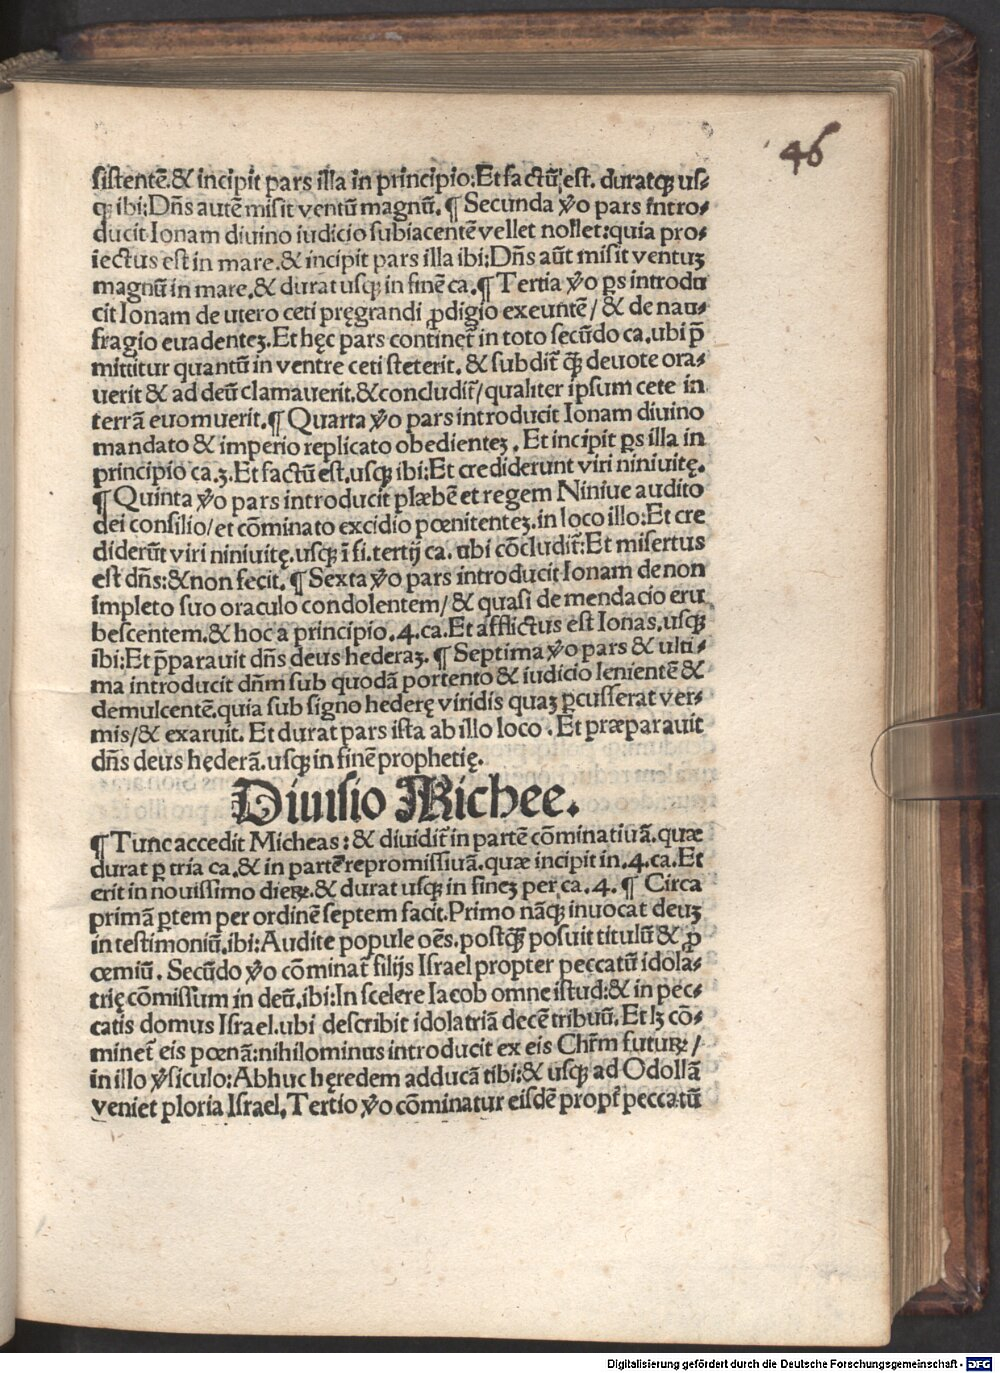 46
sistentē.& incipit pars illa in principio:Et factū est. duratqꝫ us-
qꝫ ibi:Dñs autē misit ventū magnū.¶ Secunda ꝟo pars intro-
ducit Ionam diuino iudicio subiacentē vellet nollet:quia pro-
iectus est in mare.& incipit pars illa ibi:Dñs aūt misit ventuꝫ
magnū in mare.& durat usqꝫ in finē ca.¶ Tertia ꝟo ꝑs introdu
cit Ionam de utero ceti pręgrandi ꝓdigio exeuntē/ & de nau-
fragio euadenteꝫ.Et hęc pars continet̄ in toto secūdo ca.ubi p̄
mittitur quantū in ventre ceti steterit. & subdit̄ qꝫ̄ deuote ora-
uerit & ad deū clamauerit.&concludit̄/qualiter ipsum cete in
terrā euomuerit.¶ Quarta ꝟo pars introducit Ionam diuino
mandato & imperio replicato obedienteꝫ. Et incipit ꝑs illa in
principio ca.3.Et factū est.usqꝫ ibi:Et crediderunt viri niniuitę.
¶ Quinta ꝟo pars introducit plæbē et regem Niniue audito
dei consilio/et cōminato excidio pœnitenteꝫ.in loco illo:Et cre
diderūt viri niniuitę.usqꝫ ī fi.tertij ca. ubi cōcludit̄:Et misertus
est dñs:&non fecit.¶ Sexta ꝟo pars introducit Ionam de non
impleto suo oraculo condolentem/& quasi de mendacio eru
bescentem.& hoc a principio.4.ca.Et afflictus est Ionas.usqꝫ
ibi:Et p̄parauit dñs deus hederaꝫ. ¶ Septima ꝟo pars & ulti-
ma introducit dñm sub quodā portento & iudicio lenientē &
demulcentē.quia sub signo hederę viridis quaꝫ ꝑcusserat ver-
mis/& exaruit. Et durat pars ista ab illo loco. Et præparauit
dñs deus hęderā.usqꝫ in finē prophetię.
Diuisio Michee.
¶ Tunc accedit Micheas: & diuidit̄ in partē cōminatiuā.quæ
durat ꝑ tria ca.& in partē repromissiuā.quæ incipit in.4.ca.Et
erit in nouissimo dieꝝ.& durat usqꝫ in fineꝫ per ca.4.¶ Circa
primā ꝑtem per ordinē septem facit.Primo nāqꝫ inuocat deuꝫ
in testimoniū.ibi:Audite popule oēs.postqꝫ̄ posuit titulū & ꝓ
œmiū. Secūdo ꝟo cōminat̄ filijs Israel propter peccatū idola-
trię cōmissum in deū.ibi:In scelere Iacob omne istud:& in pec-
catis domus Israel.ubi describit idolatriā decē tribuū.Et lꝫ cō-
minet̄ eis pœnā:nihilominus introducit ex eis Chr̄m futuꝝ/
in illo ꝟsiculo:Abhuc hęredem adducā tibi:& usqꝫ ad Odollā
veniet ploria Israel.Tertio ꝟo cōminatur eisdē propt̄ peccatū
Digitalisierung gefördert durch die Deutsche Forschungsgemeinschaft - DFG